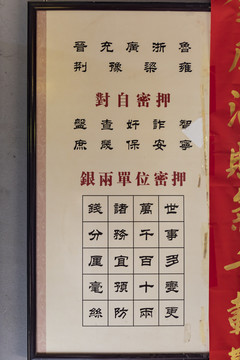 晉 充 廣 浙 魯
荆 豫 梁 雍
對自密押
盤 查 奸 詐 智
庶 幾 保 安 寧
銀兩單位密押
世事多變更
萬千百十兩
諸務宜預防
錢分厘毫絲